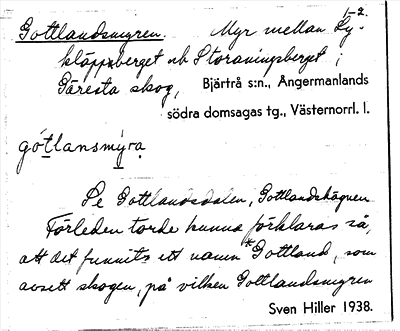 1-2.
Gottlandsmyren. Myr mellan Ly-
kläppsberget och Storaningsberget i
Gåresta skog, Bjärtrå s:n., Ångermanlands
södra domsagas tg., Västernorrl. l.
gótlansmýra
Se Gottlandsdalen, Gottlandshägnen
Förleden torde kunna förklaras så,
att det funnits ett namn *Gottland, som
avsett skogen, på vilken Gottlandsmyren
Sven Hiller 1938.